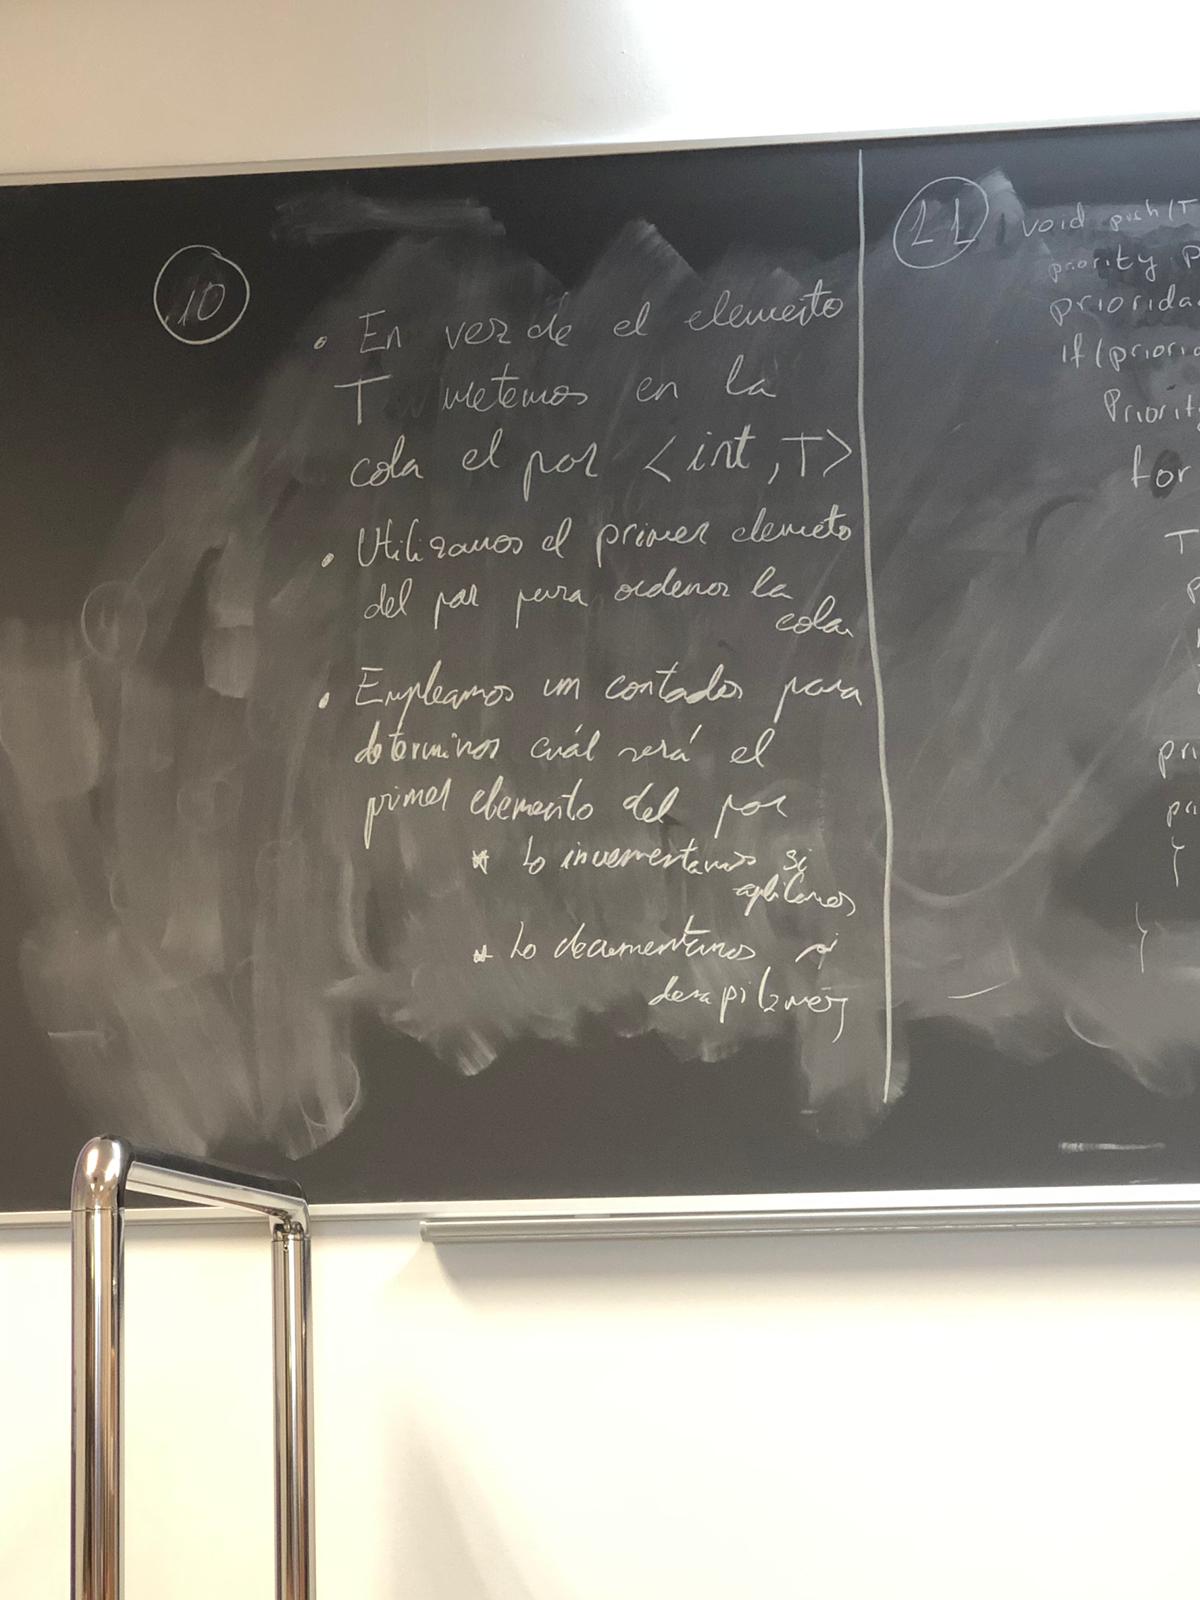 10
• En vez de el elemento
T metemos en la
cola el par <int, T>
• Utilizamos el primer elemento
del par para ordenar la
cola
• Empleamos un contador para
determinar cuál será el
primer elemento del par
* Lo incrementamos si
apilamos
* Lo decrementamos si
desapilamos
11
void push(T
priority p
priorida
if(priori
Priorit
for
T
p
pri
pri
}
}